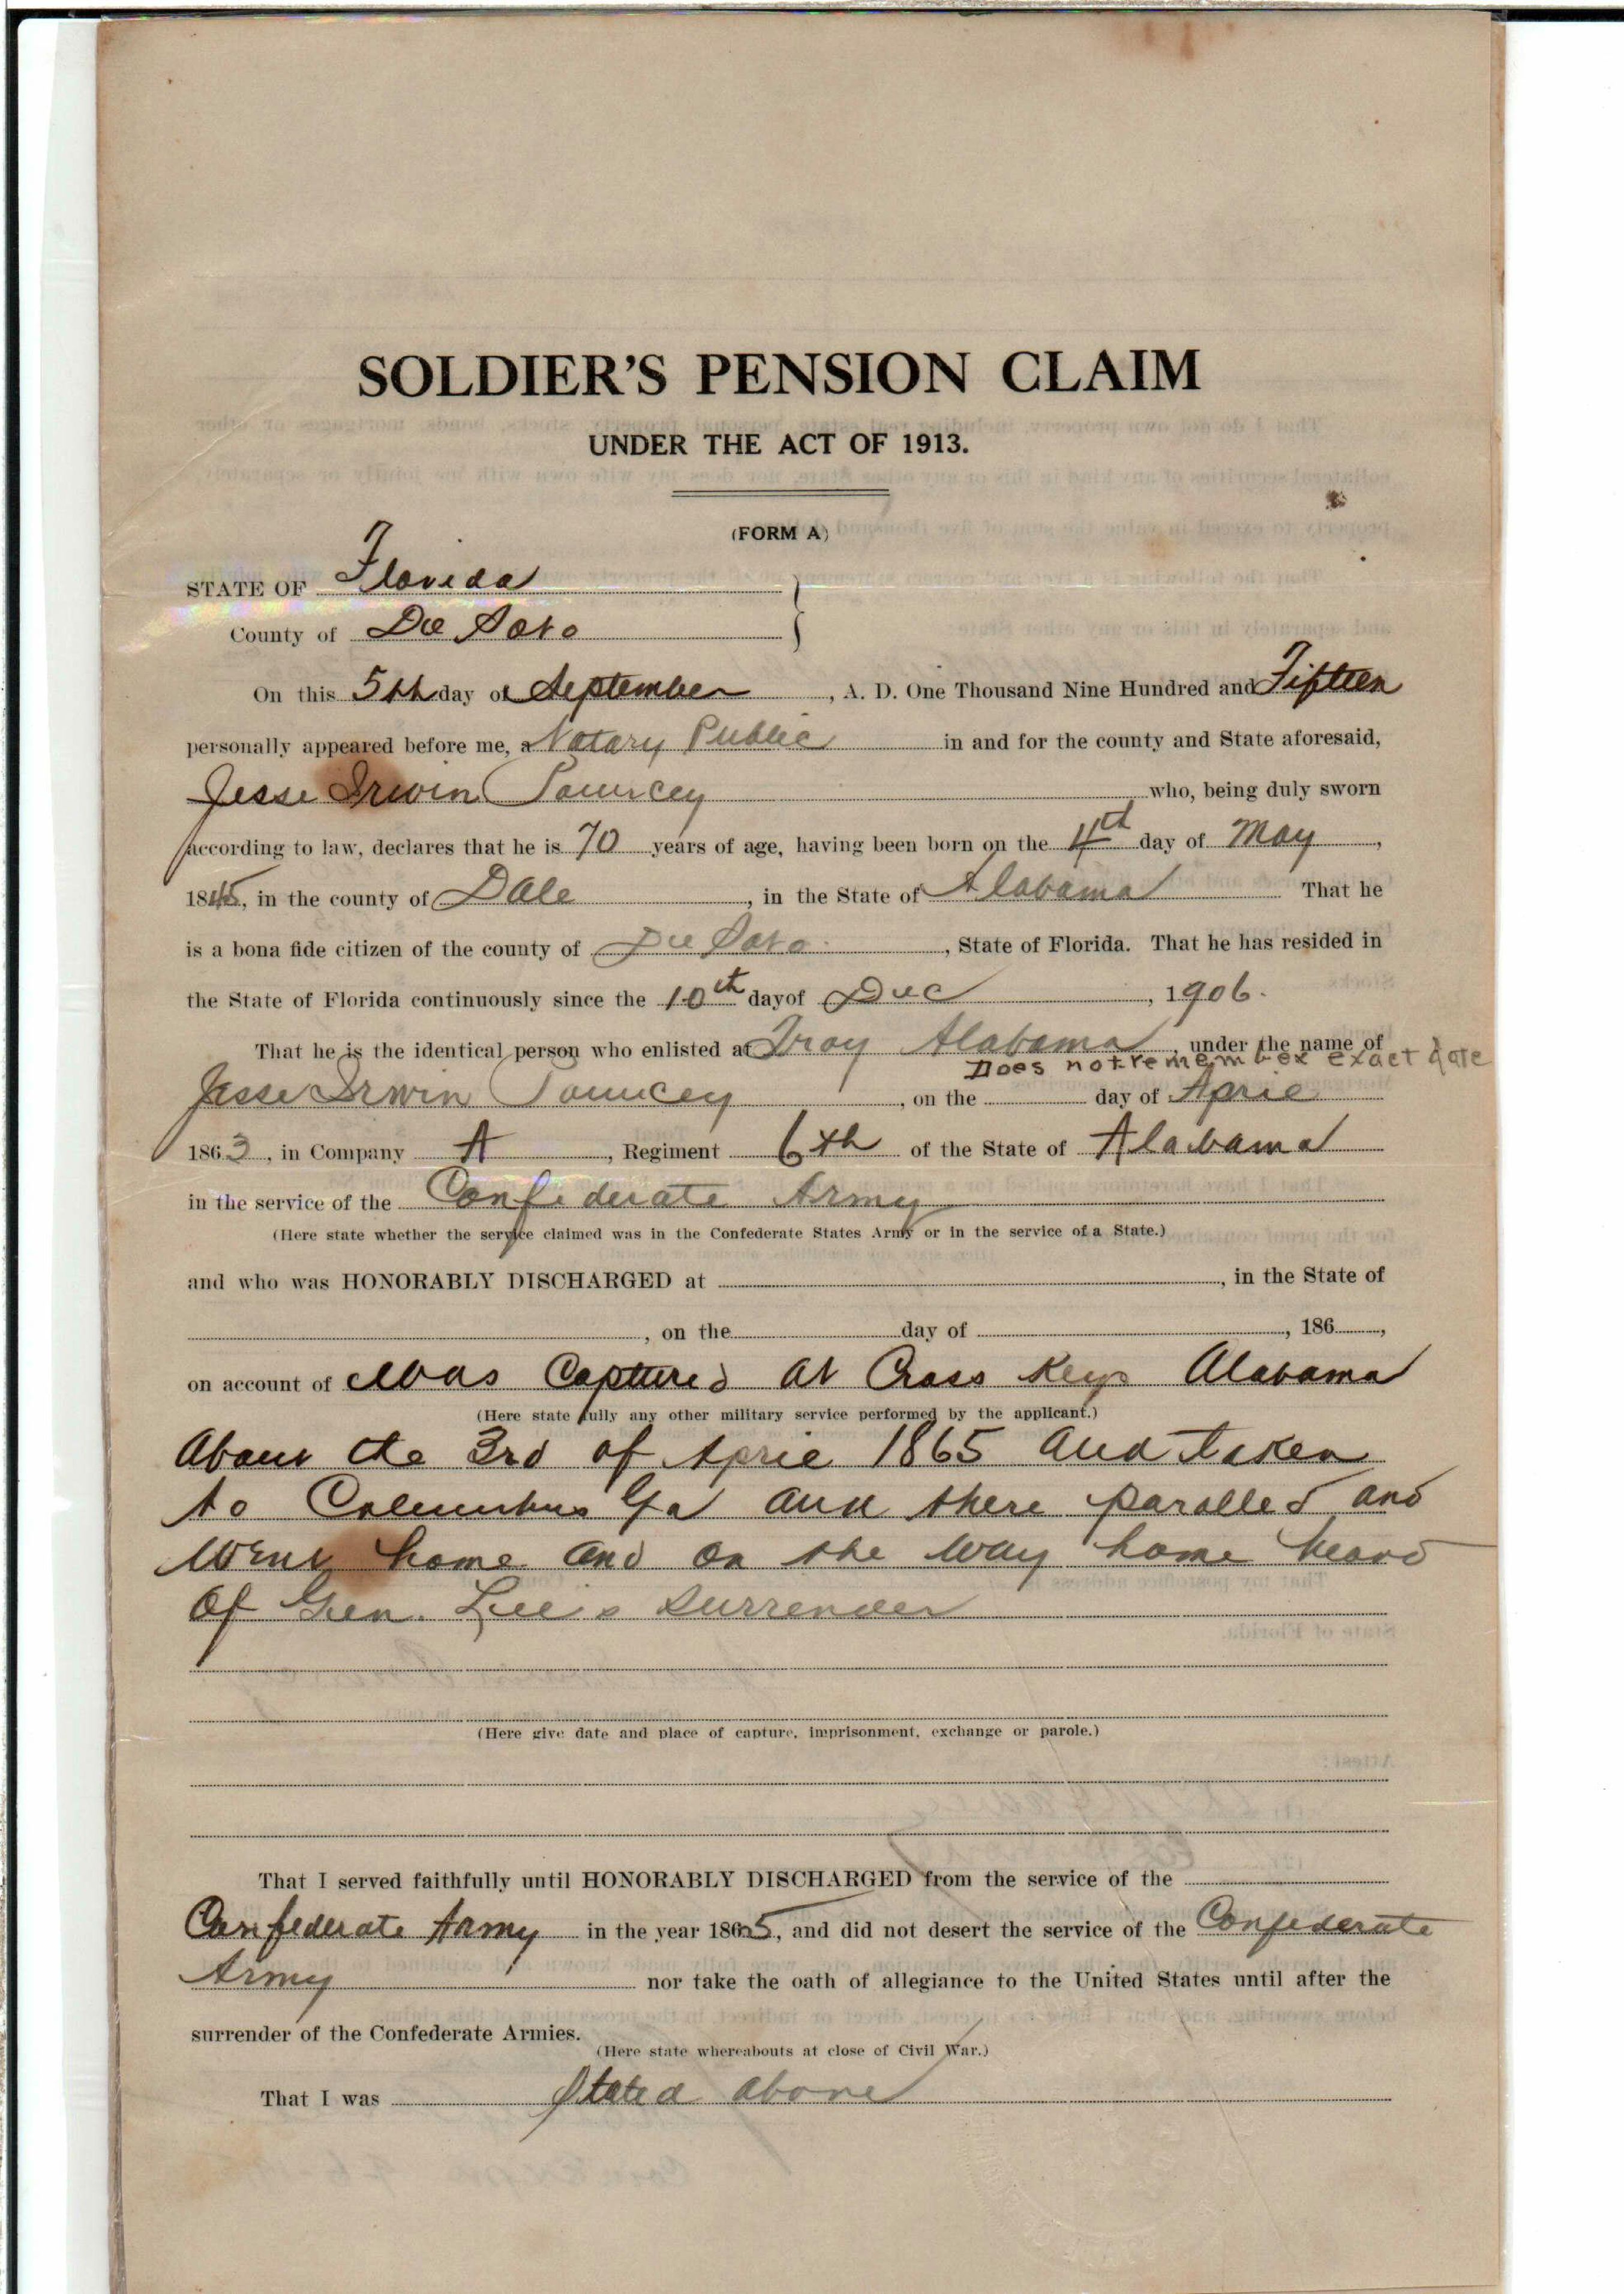 SOLDIER'S PENSION CLAIM
UNDER THE ACT OF 1913.
(FORM A)
STATE OF Florida
County of De Soto
On this 5th day of September, A. D. One Thousand Nine Hundred and Fifteen
personally appeared before me, a Notary Public in and for the county and State aforesaid,
Jesse Irwin Pouncey who, being duly sworn
according to law, declares that he is 70 years of age, having been born on the 4th day of May,
1845, in the county of Dale, in the State of Alabama That he
is a bona fide citizen of the county of De Soto, State of Florida. That he has resided in
the State of Florida continuously since the 10th day of Dec, 1906.
That he is the identical person who enlisted at Troy Alabama, under the name of
Does not remember exact date
Jesse Irwin Pouncey, on the day of April
1863, in Company A, Regiment 6th of the State of Alabama
in the service of the Confederate Army
(Here state whether the service claimed was in the Confederate States Army or in the service of a State.)
and who was HONORABLY DISCHARGED at , in the State of
, on the day of , 186 ,
on account of Was Captured at Cross Keys Alabama
(Here state fully any other military service performed by the applicant.)
About the 3rd of April 1865 and taken
to Columbus Ga and there parolled and
Went home and on the way home heard
of Gen. Lee's Surrender
(Here give date and place of capture, imprisonment, exchange or parole.)
That I served faithfully until HONORABLY DISCHARGED from the service of the
Confederate Army in the year 1865, and did not desert the service of the Confederate
Army nor take the oath of allegiance to the United States until after the
surrender of the Confederate Armies.
(Here state whereabouts at close of Civil War.)
That I was Stated above